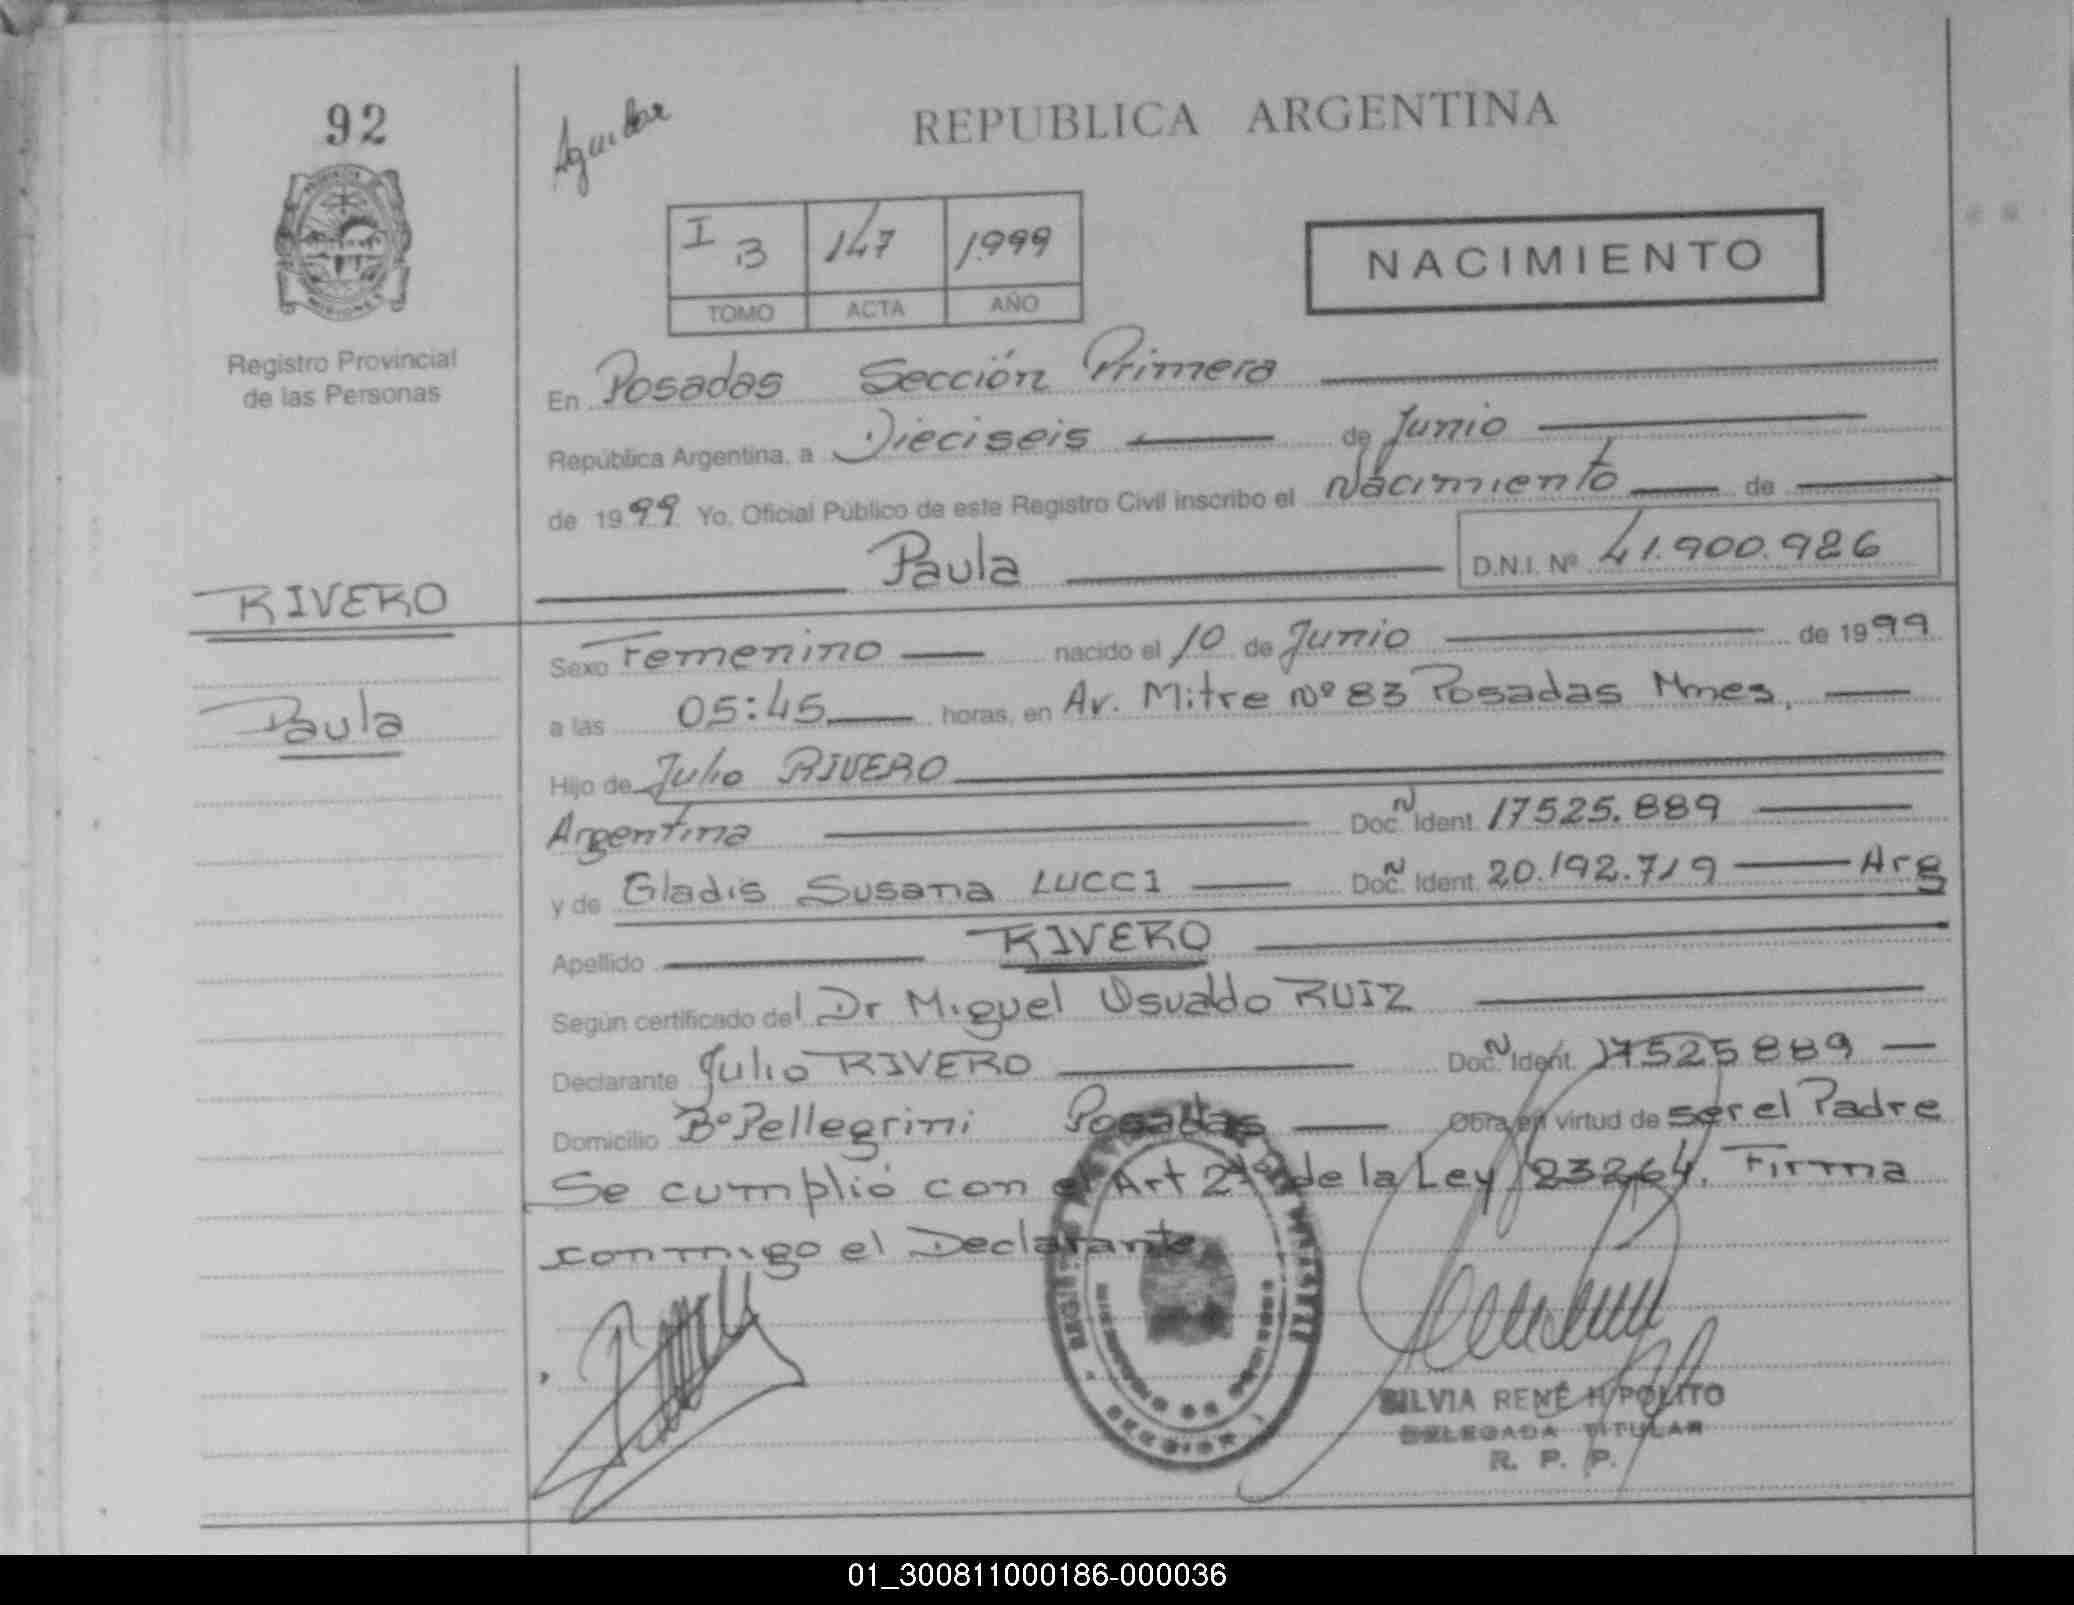 92
Aguilar
REPUBLICA ARGENTINA
I 3 147 1999
TOMO ACTA AÑO
NACIMIENTO
Registro Provincial
de las Personas
En Posadas Sección Primera
República Argentina, a Dieciseis de Junio
de 1999 Yo, Oficial Público de este Registro Civil inscribo el Nacimiento de
Paula D.N.I. Nº 41.900.926
RIVERO
Paula
Sexo Femenino nacido el 10 de Junio de 1999
a las 05:45 horas, en Av. Mitre Nº 83 Posadas Mnes,
Hijo de Julio RIVERO
Argentina Doc. N Ident. 17525.889
y de Gladis Susana LUCCI Doc. N Ident. 20.192.719 Arg
Apellido RIVERO
Según certificado del Dr Miguel Osvaldo RUIZ
Declarante Julio RIVERO Doc. N Ident. 17525889
Domicilio Bº Pellegrini Posadas Obra en virtud de ser el Padre
Se cumplió con el Art 2º de la Ley 23264. Firma
conmigo el Declarante
SILVIA RENÉ HIPOLITO
DELEGADA TITULAR
R. P. P.
01_300811000186-000036